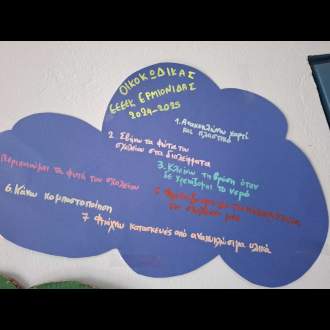 ΟΙΚΟΚΩΔΙΚΑΣ
ΕΕΕΕΚ ΕΡΜΙΟΝΙΔΑΣ
2024-2025
1. Ανακυκλώνω χαρτί
και πλαστικό
2. Σβήνω τα φώτα του
σχολείου στα διαλείμματα
3. Κλείνω τη βρύση όταν
δε χρειάζομαι το νερό
Περιποιούμαι τα φυτά του σχολείου
5.
το σχολείο μας
6. Κάνω κομποστοποίηση
7. Φτιάχνω κατασκευές από ανακυκλώσιμα υλικά